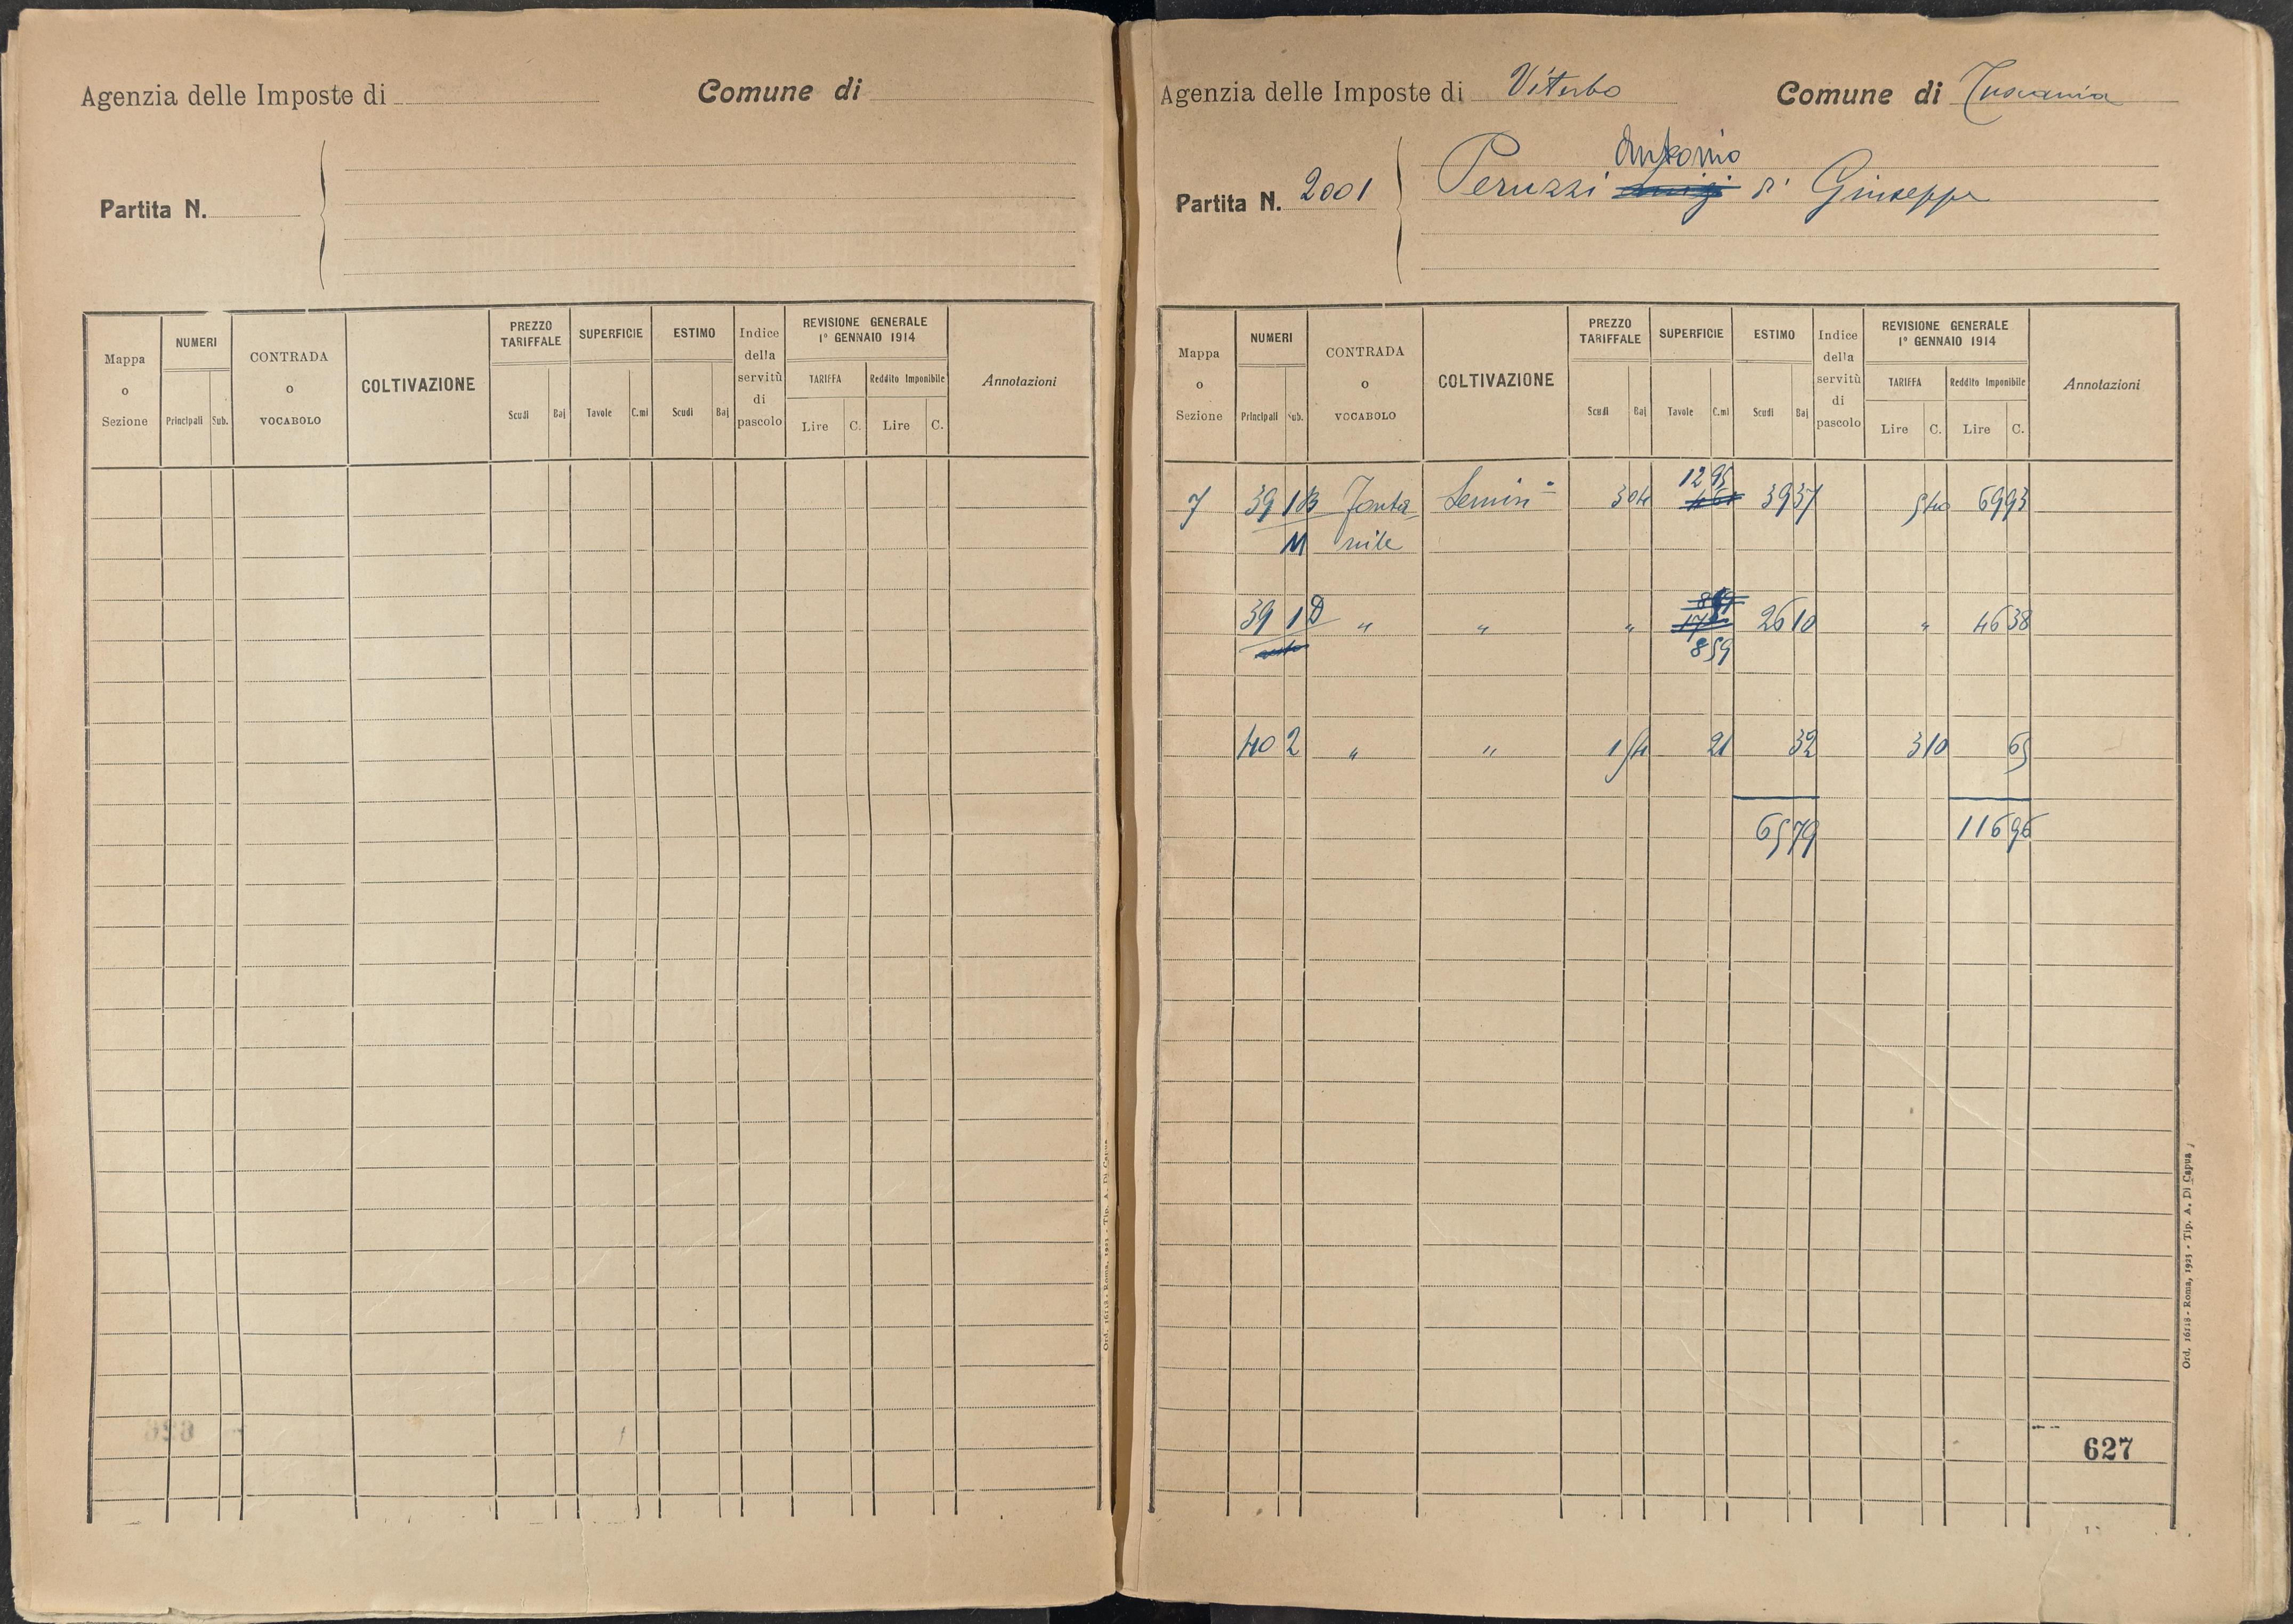 Agenzia delle Imposte di
Comune di
Partita N.
Mappa o Sezione
NUMERI
Principali Sub.
CONTRADA o VOCABOLO
COLTIVAZIONE
PREZZO TARIFFALE
Scudi Baj
SUPERFICIE
Tavole C.mi
ESTIMO
Scudi Baj
Indice della servitù di pascolo
REVISIONE GENERALE
1° GENNAIO 1914
TARIFFA
Lire C.
Reddito Imponibile
Lire C.
Annotazioni
Ord. 16118 - Roma, 1923 - Tip. A. Di Capua
Agenzia delle Imposte di Viterbo Comune di Tuscania
Antonio
Partita N. 2001 Peruzzi Luigi di Giuseppe
Mappa o Sezione
NUMERI
Principali Sub.
CONTRADA o VOCABOLO
COLTIVAZIONE
PREZZO TARIFFALE
Scudi Baj
SUPERFICIE
Tavole C.mi
ESTIMO
Scudi Baj
Indice della servitù di pascolo
REVISIONE GENERALE
1° GENNAIO 1914
TARIFFA
Lire C.
Reddito Imponibile
Lire C.
Annotazioni
12 95
7 39 1B Fonta Semin 3 04 39 37 5 40 69 93
M nile
39 1D " " " 26 10 " 46 38
8 59
40 2 " " 1 54 21 32 3 10 65
65 79 116 96
627
Ord. 16118 - Roma, 1923 - Tip. A. Di Capua